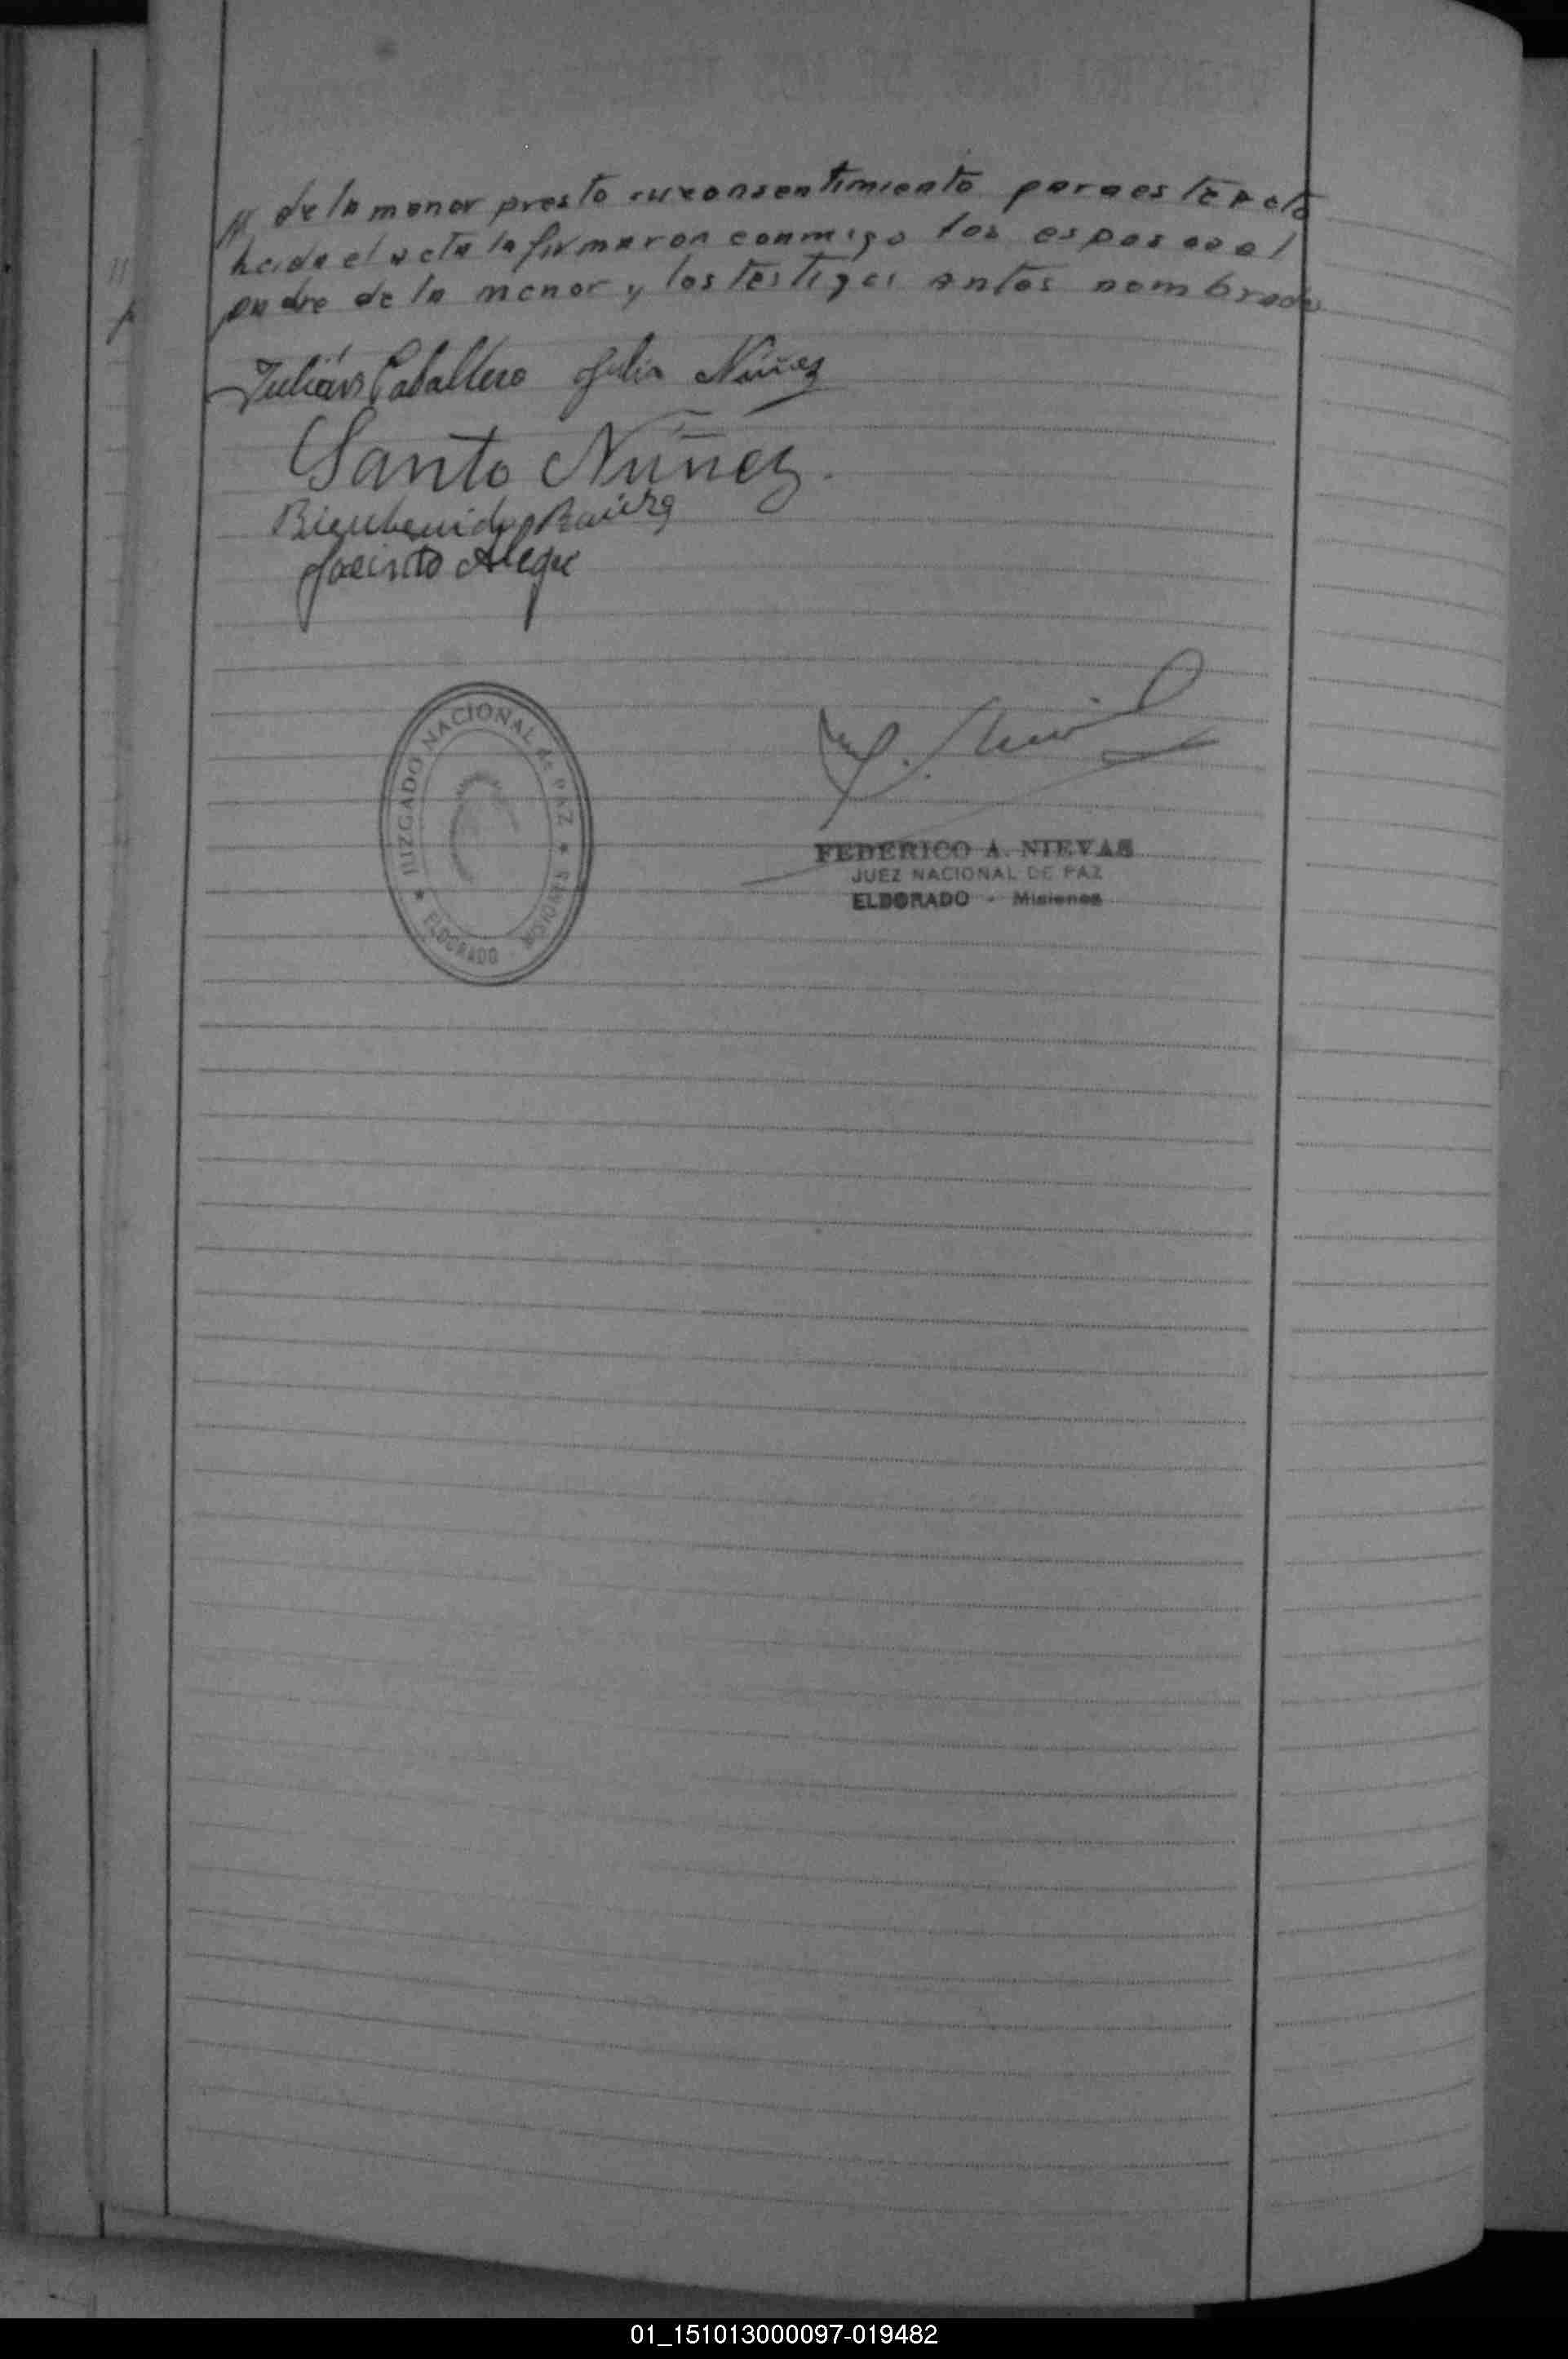 // de la menor presto su consentimiento para este acto
leida el acta la firmaron conmigo los esposos el
padre de la menor y los testigos antes nombrados
Julián Caballero Julia Núñez
Santo Núñez.
Bienbenido
Jacinto Alegre
JUZGADO NACIONAL de PAZ
ELDORADO - MISIONES
FEDERICO A. NIEVAS
JUEZ NACIONAL DE PAZ
ELDORADO - Misiones
01_151013000097-019482